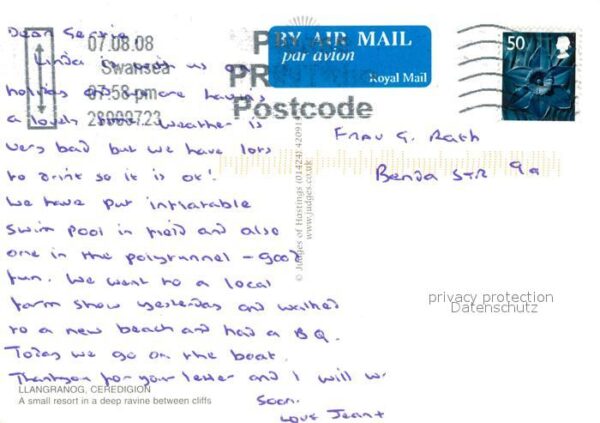 Dear
Linda is with us on
holiday and we are having
a lovely time weather is
very bad but we have lots
to drink so it is ok!
We have put inflatable
swim pool in field and also
one in the polytunnel - good
fun. We went to a local
farm show yesterday and walked
to a new beach and had a BQ.
Today we go on the boat.
Thankyou for your letter and I will
soon.
Love Jean +
LLANGRANOG, CEREDIGION
A small resort in a deep ravine between cliffs
07.08.08
Swansea
07:58 pm
28000723
Postcode
BY AIR MAIL
par avion
Royal Mail
50
© Judges of Hastings (01424) 420919
www.judges.co.uk
Frau G. Rath
Benda STR 9a
privacy protection
Datenschutz